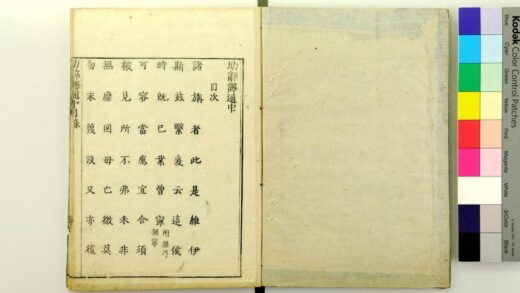 助辭譯通中
目次
諸旃者此是維伊
斯兹繄爰云侯
時既已業曾寧
附無乃
無寧
可容當應宜合須
被見所不弗未非
無靡罔毋亡微莫
勿末蔑没又亦復
助辭譯通中目錄
Kodak Color Control Patches
Blue
Cyan
Green
Yellow
Red
Magenta
White
3/Color
Black